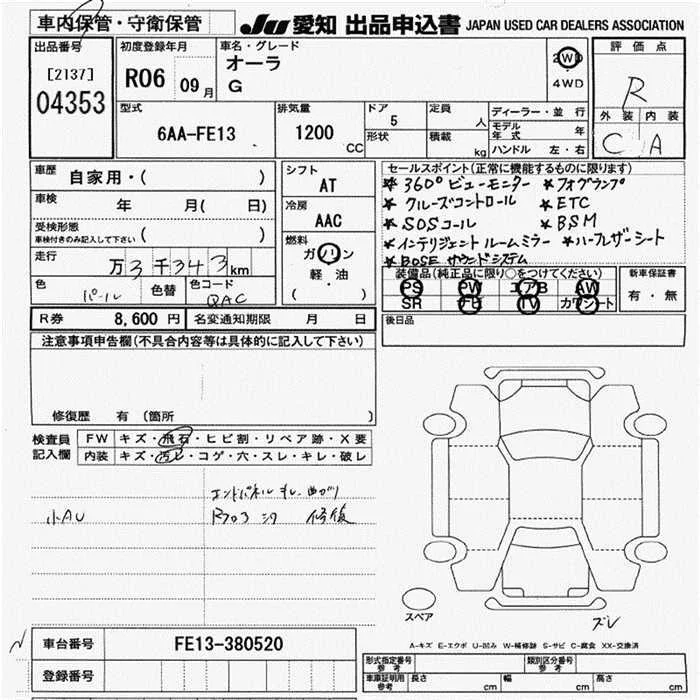 車内保管・守衛保管
JU 愛知 出品申込書 JAPAN USED CAR DEALERS ASSOCIATION
出品番号
[2137]
04353
初度登録年月
R06 09月
車名・グレード
オーラ
G
2WD
4WD
評価点
R
外装 内装
C A
型式
6AA-FE13
排気量
1200 CC
ドア
5
形状
定員
人
積載
kg
ディーラー・並行
モデル年式 年
ハンドル 左・右
車歴
自家用・( )
車検
年 月( 日)
受検形態
車検付きのみ記入して下さい ( )
走行
万3千343km
色
パール
色替
色コード
QAC
シフト
AT
冷房
AAC
燃料
ガソリン
軽・油
( )
セールスポイント(正常に機能するものに限り)
★ 360°ビューモニター ★フォグランプ
★ クルーズコントロール ★ETC
★ SOSコール ★BSM
★インテリジェント ルームミラー ★ハーフレザーシート
★BOSE サウンドシステム
装備品(純正品に限り○をつけてください)
PS PW エアB AW
SR ナビ TV カワシート
新車保証書
有・無
後日品
R券 8,600 円
名変通知期限 月 日
注意事項申告欄(不具合内容等は具体的に記入して下さい)
修復歴 有 (箇所 )
検査員記入欄
FW キズ・飛石・ヒビ割・リペア跡・X要
内装 キズ・汚レ・コゲ・穴・スレ・キレ・破レ
エンドパネル
小AU
修復
スペア
ズレ
A-キズ E-エクボ U-凹み W-補修跡 S-サビ C-腐食 XX-交換済
車台番号
FE13-380520
登録番号
形式指定番号
参考
類別区分番号
参考
車庫証明用
参考
長さ cm
幅 cm
高さ cm